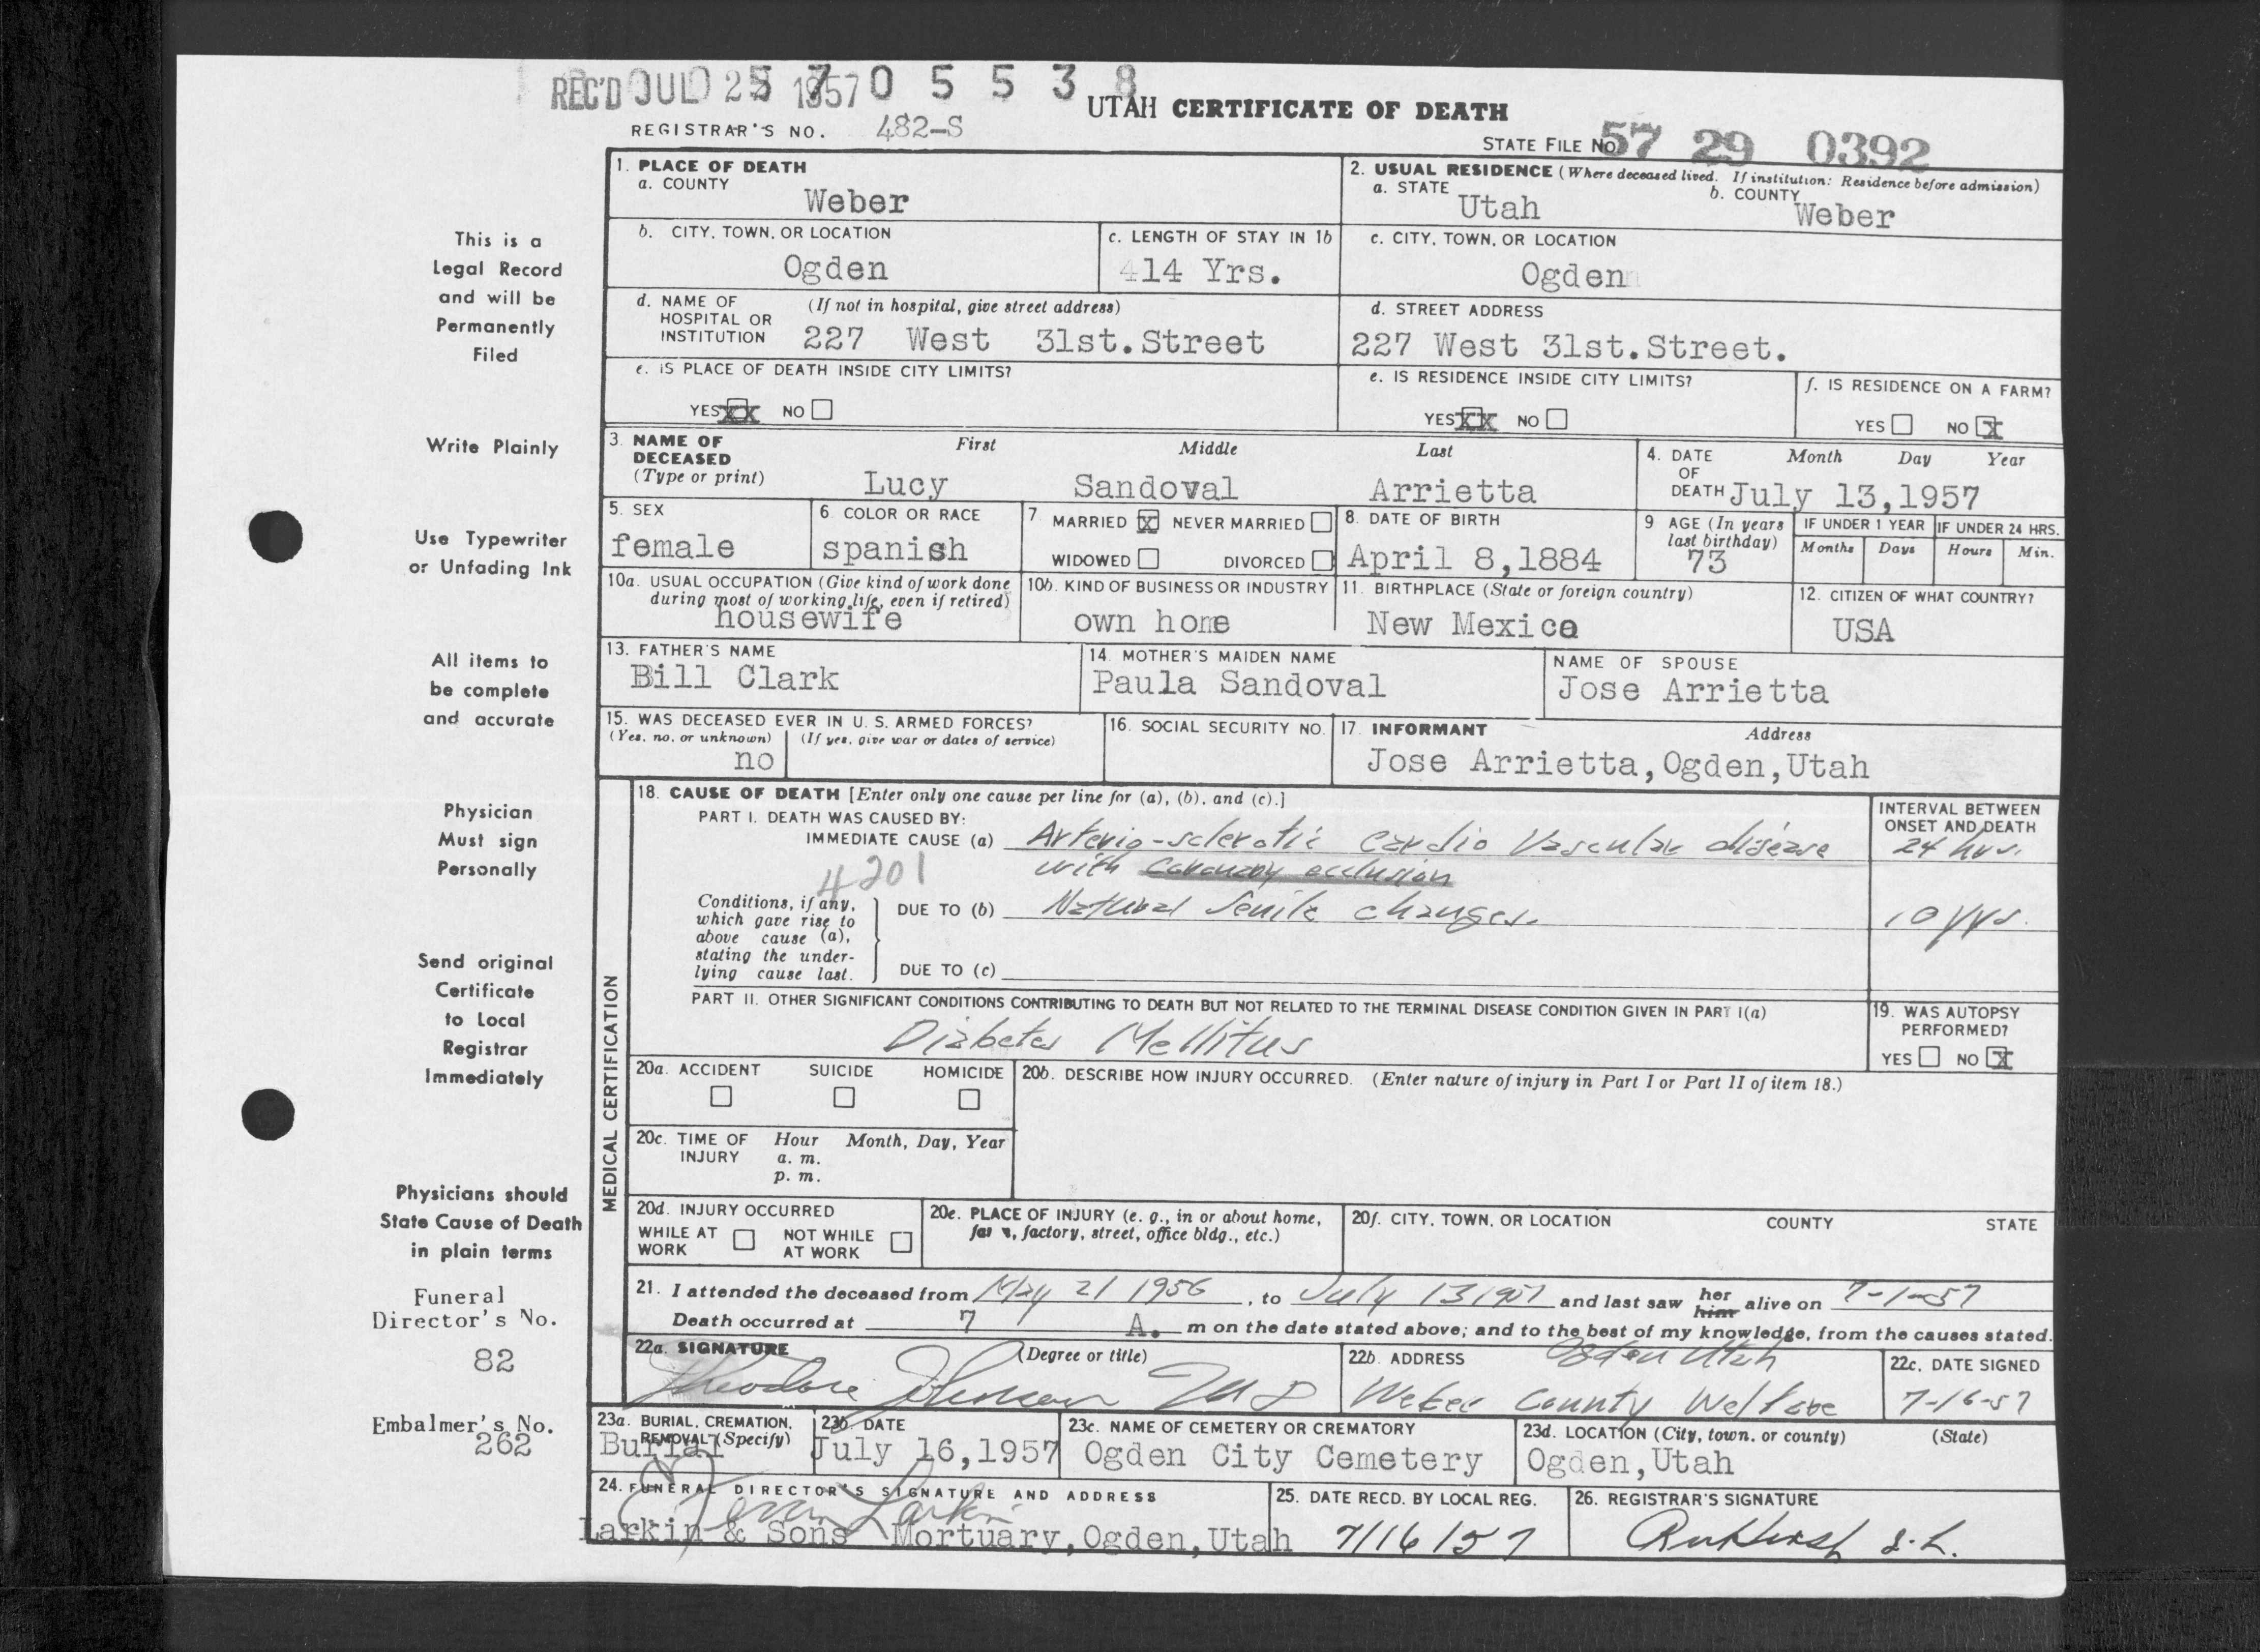 REC'D JUL 25 1957 0 5 5 3 8
UTAH CERTIFICATE OF DEATH
REGISTRAR'S NO. 482-S
STATE FILE NO. 57 29 0392
1. PLACE OF DEATH
a. COUNTY
Weber
2. USUAL RESIDENCE (Where deceased lived. If institution: Residence before admission)
a. STATE Utah b. COUNTY Weber
b. CITY, TOWN, OR LOCATION
Ogden
c. LENGTH OF STAY IN 1b
14 Yrs.
c. CITY, TOWN, OR LOCATION
Ogden
d. NAME OF HOSPITAL OR INSTITUTION (If not in hospital, give street address)
227 West 31st.Street
d. STREET ADDRESS
227 West 31st.Street.
e. IS PLACE OF DEATH INSIDE CITY LIMITS?
YES XX NO
e. IS RESIDENCE INSIDE CITY LIMITS?
YES XX NO
f. IS RESIDENCE ON A FARM?
YES NO X
3. NAME OF DECEASED (Type or print)
First Middle Last
Lucy Sandoval Arrietta
4. DATE OF DEATH Month Day Year
July 13,1957
5. SEX
female
6. COLOR OR RACE
spanish
7. MARRIED X NEVER MARRIED
WIDOWED DIVORCED
8. DATE OF BIRTH
April 8,1884
9 AGE (In years last birthday)
73
IF UNDER 1 YEAR IF UNDER 24 HRS.
Months Days Hours Min.
10a. USUAL OCCUPATION (Give kind of work done during most of working life, even if retired)
housewife
10b. KIND OF BUSINESS OR INDUSTRY
own home
11. BIRTHPLACE (State or foreign country)
New Mexico
12. CITIZEN OF WHAT COUNTRY?
USA
13. FATHER'S NAME
Bill Clark
14. MOTHER'S MAIDEN NAME
Paula Sandoval
NAME OF SPOUSE
Jose Arrietta
15. WAS DECEASED EVER IN U. S. ARMED FORCES?
(Yes, no, or unknown) (If yes, give war or dates of service)
no
16. SOCIAL SECURITY NO.
17. INFORMANT Address
Jose Arrietta,Ogden,Utah
MEDICAL CERTIFICATION
18. CAUSE OF DEATH [Enter only one cause per line for (a), (b), and (c).]
PART I. DEATH WAS CAUSED BY:
IMMEDIATE CAUSE (a) Arterio-sclerotic Cardio Vascular disease
with coronary occlusion
4201
INTERVAL BETWEEN ONSET AND DEATH
24 hrs.
Conditions, if any, which gave rise to above cause (a), stating the underlying cause last.
DUE TO (b) Natural Senile changes.
10 yrs.
DUE TO (c)
PART II. OTHER SIGNIFICANT CONDITIONS CONTRIBUTING TO DEATH BUT NOT RELATED TO THE TERMINAL DISEASE CONDITION GIVEN IN PART I(a)
Diabetes Mellitus
19. WAS AUTOPSY PERFORMED?
YES NO X
20a. ACCIDENT SUICIDE HOMICIDE
20b. DESCRIBE HOW INJURY OCCURRED. (Enter nature of injury in Part I or Part II of item 18.)
20c. TIME OF INJURY Hour Month, Day, Year
a. m.
p. m.
20d. INJURY OCCURRED
WHILE AT WORK NOT WHILE AT WORK
20e. PLACE OF INJURY (e. g., in or about home, farm, factory, street, office bldg., etc.)
20f. CITY, TOWN, OR LOCATION COUNTY STATE
21. I attended the deceased from May 21 1956, to July 13 1957 and last saw her him alive on 7-1-57
Death occurred at 7 A. m on the date stated above; and to the best of my knowledge, from the causes stated.
22a. SIGNATURE (Degree or title)
Theodore Johnson MD
22b. ADDRESS Ogden Utah
Weber County Welfare
22c. DATE SIGNED
7-16-57
23a. BURIAL, CREMATION, REMOVAL (Specify)
Burial
23b. DATE
July 16,1957
23c. NAME OF CEMETERY OR CREMATORY
Ogden City Cemetery
23d. LOCATION (City, town, or county) (State)
Ogden,Utah
24. FUNERAL DIRECTOR'S SIGNATURE AND ADDRESS
Larkin
Larkin & Sons Mortuary,Ogden,Utah
25. DATE RECD. BY LOCAL REG.
7/16/57
26. REGISTRAR'S SIGNATURE
This is a
Legal Record
and will be
Permanently
Filed
Write Plainly
Use Typewriter
or Unfading Ink
All items to
be complete
and accurate
Physician
Must sign
Personally
Send original
Certificate
to Local
Registrar
Immediately
Physicians should
State Cause of Death
in plain terms
Funeral
Director's No.
82
Embalmer's No.
262